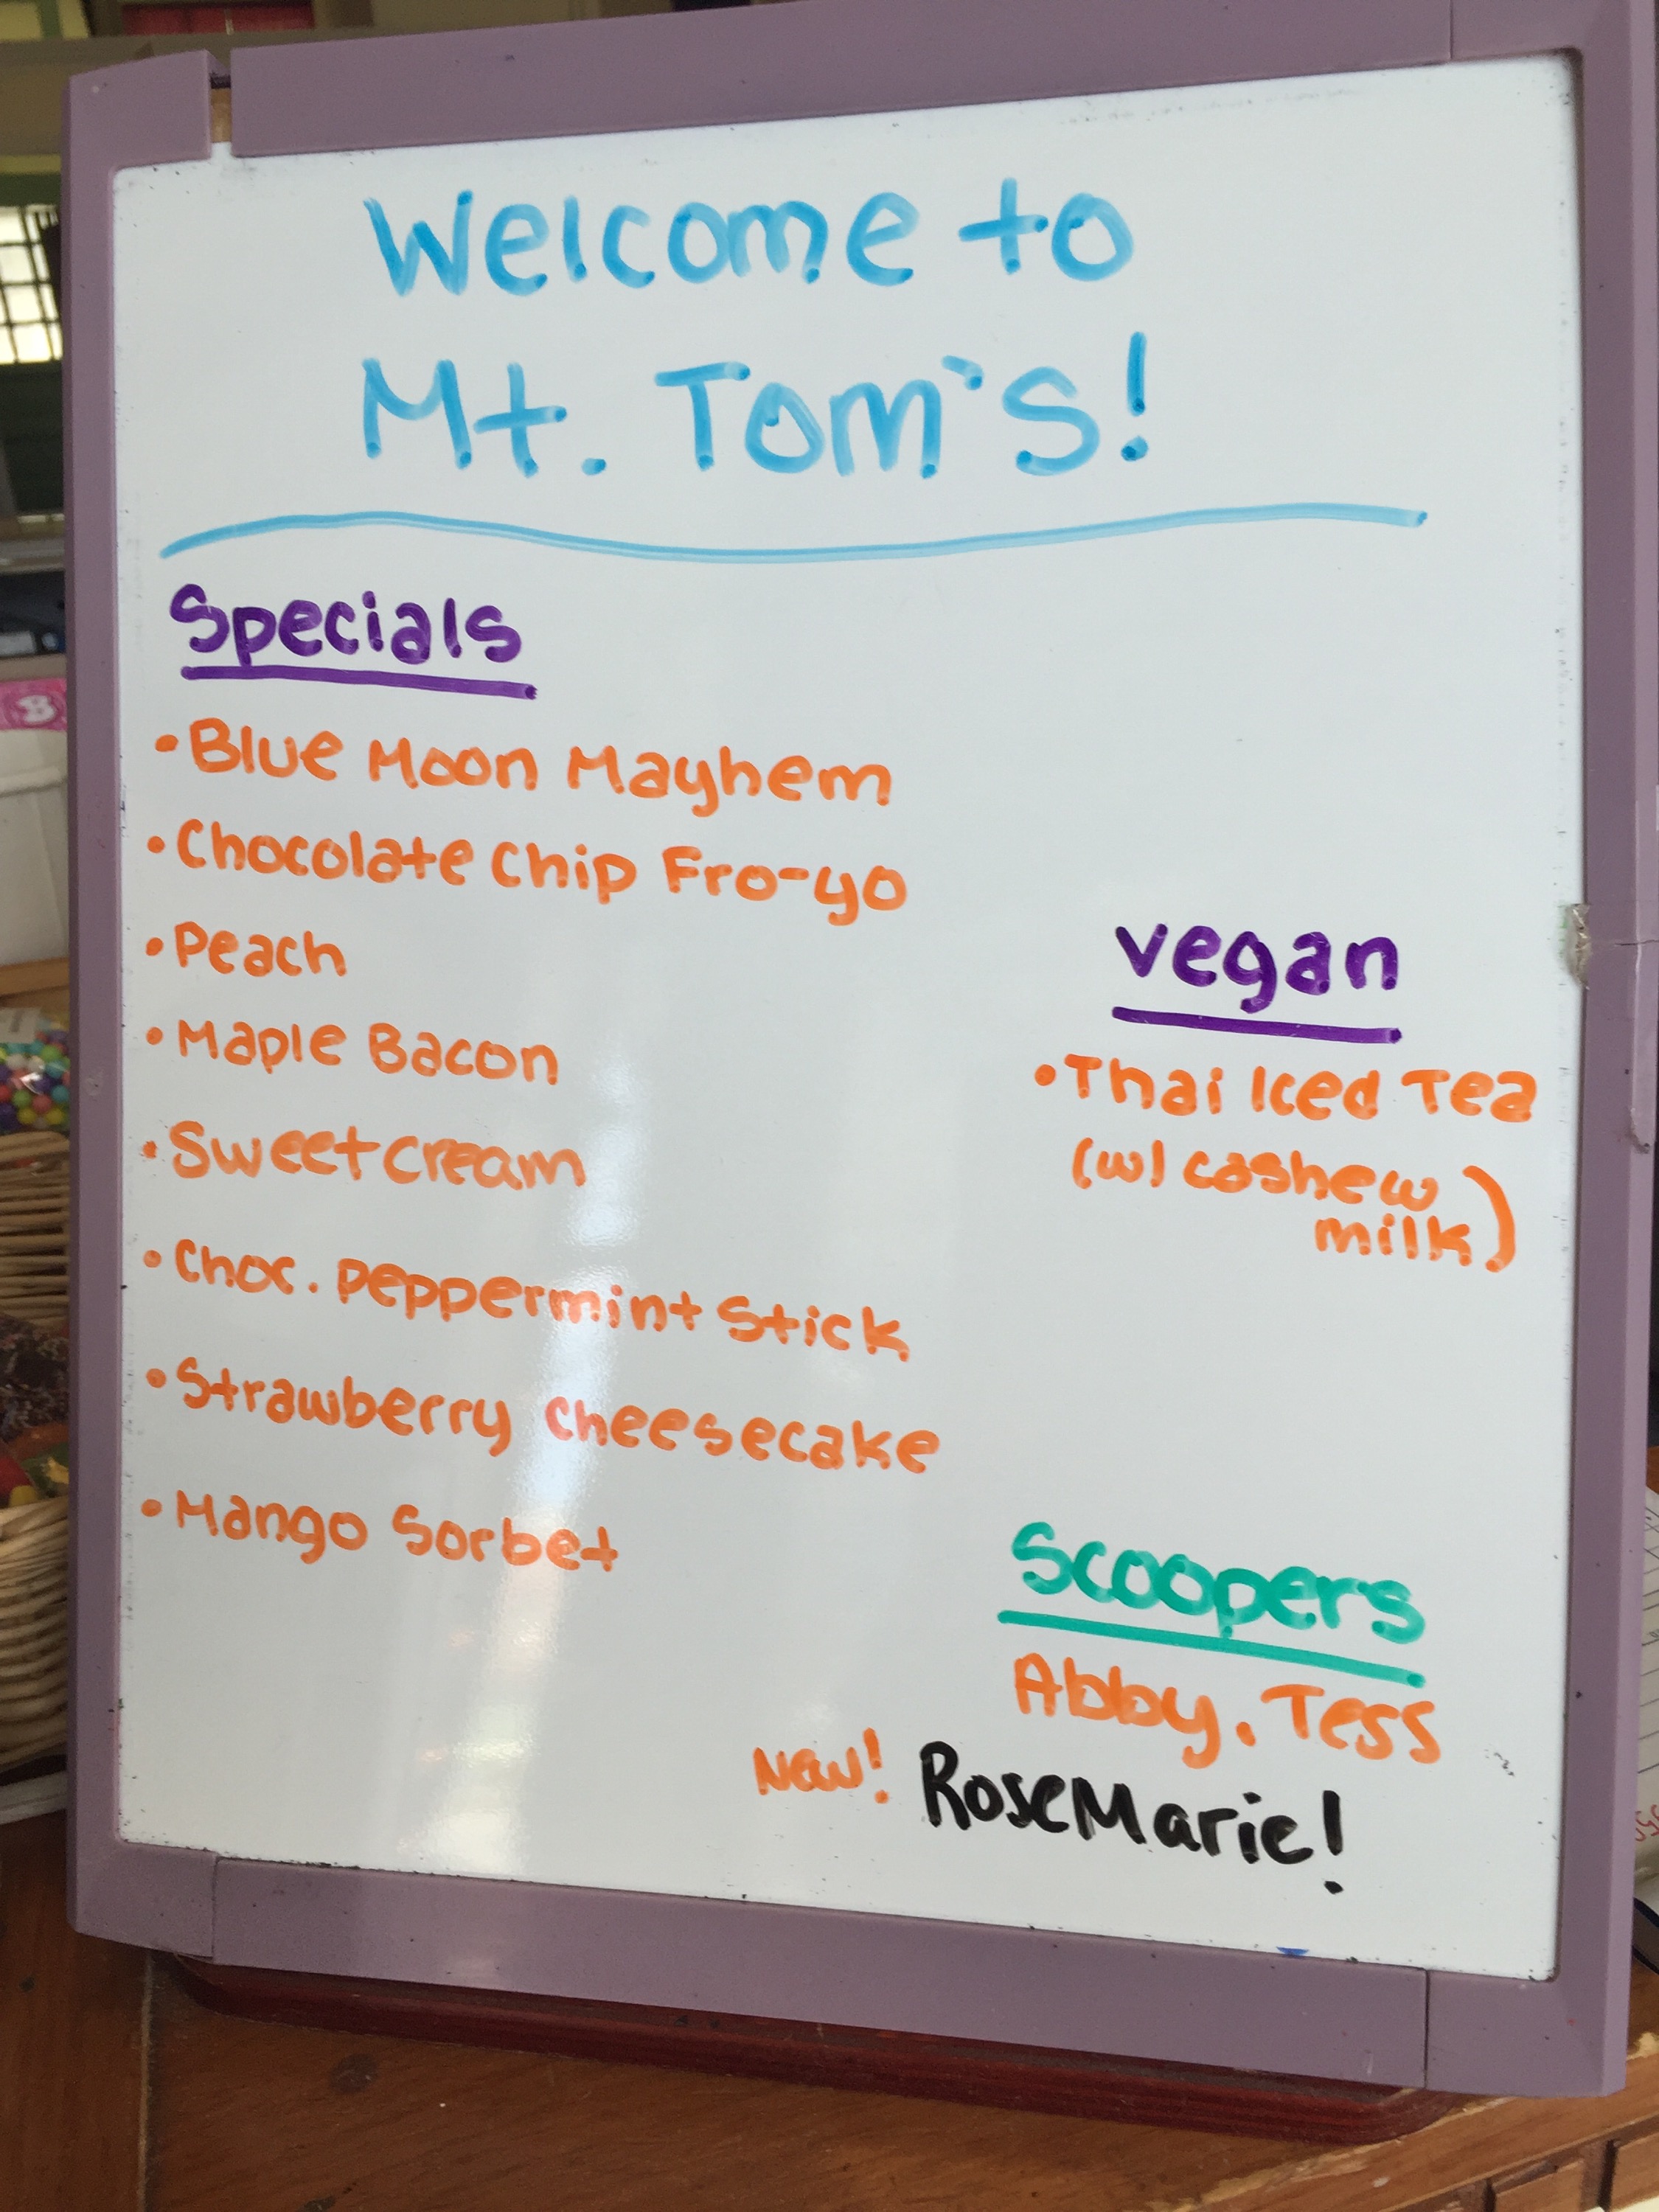 Welcome to
Mt. Tom's!
Specials
• Blue Moon Mayhem
• Chocolate Chip Fro-yo
• Peach
• Maple Bacon
• Sweetcream
• Choc. Peppermint Stick
• Strawberry Cheesecake
• Mango Sorbet
vegan
• Thai Iced Tea
(w/ cashew
milk)
Scoopers
Abby, Tess
New! RoseMarie!